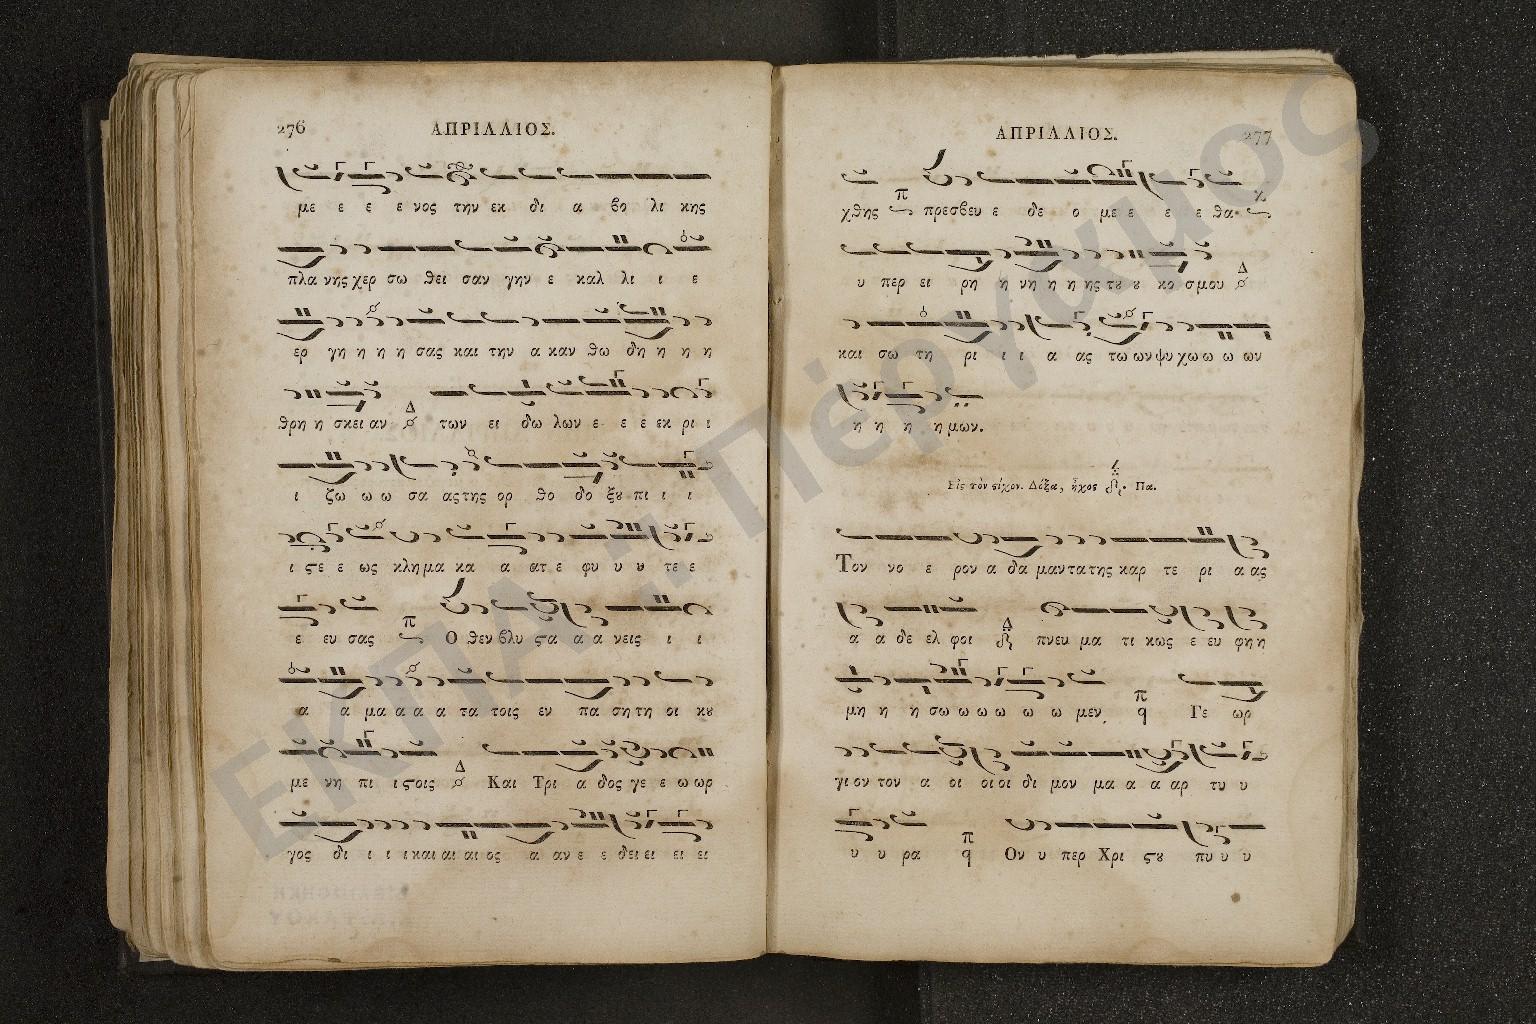 276 ΑΠΡΙΛΛΙΟΣ.
με ε ε ε νος την εκ δι α βο λι κης
πλα νης χερ σω θει σαν γην ε καλ λι ι ε
ερ γη η η η σας και την α καν θω δη η η η
Δ
θρη η σκει αν των ει δω λων ε ε ε εκ ρι ι
ι ζω ω ω σα ας της ορ θο δο ξου πι ι ι
ι ϛε ε ως κλη μα κα α ατ ε φυ υ υ τε ε
π
ε ευ σας Ο θεν βλυ ϛα α α νεις ι ι
α α μα α α α τα τοις εν πα ση τη οι κου
Δ
με νη πι ι ϛοις Και Τρι α δος γε ε ω ωρ
γος δι ι ι ι και αι αι ος α αν ε ε δει ει ει ει
ΑΠΡΙΛΛΙΟΣ. 277
π
χθης πρεσβευ ε δε ο με ε ε ε θα
Δ
υ περ ει ρη η νη η η ης του ου κο σμου
και σω τη ρι ι ι α ας τω ων ψυ χω ω ω ων
η η η η μων.
Εἰς τὸν ϛίχον. Δόξα, ἦχος Πα.
Τον νο ε ρον α δα μαν τα της καρ τε ρι α ας
Δ
α α δε ελ φοι πνευ μα τι κως ε ευ φη η
π
μη η η σω ω ω ω ω ω μεν q Γε ωρ
γι ον τον α οι οι οι δι μον μα α α αρ τυ υ
π
υ υ ρα q Ον υ περ Χρι ϛου πυ υ υ
ΕΚΠΑ: Πέργαμος